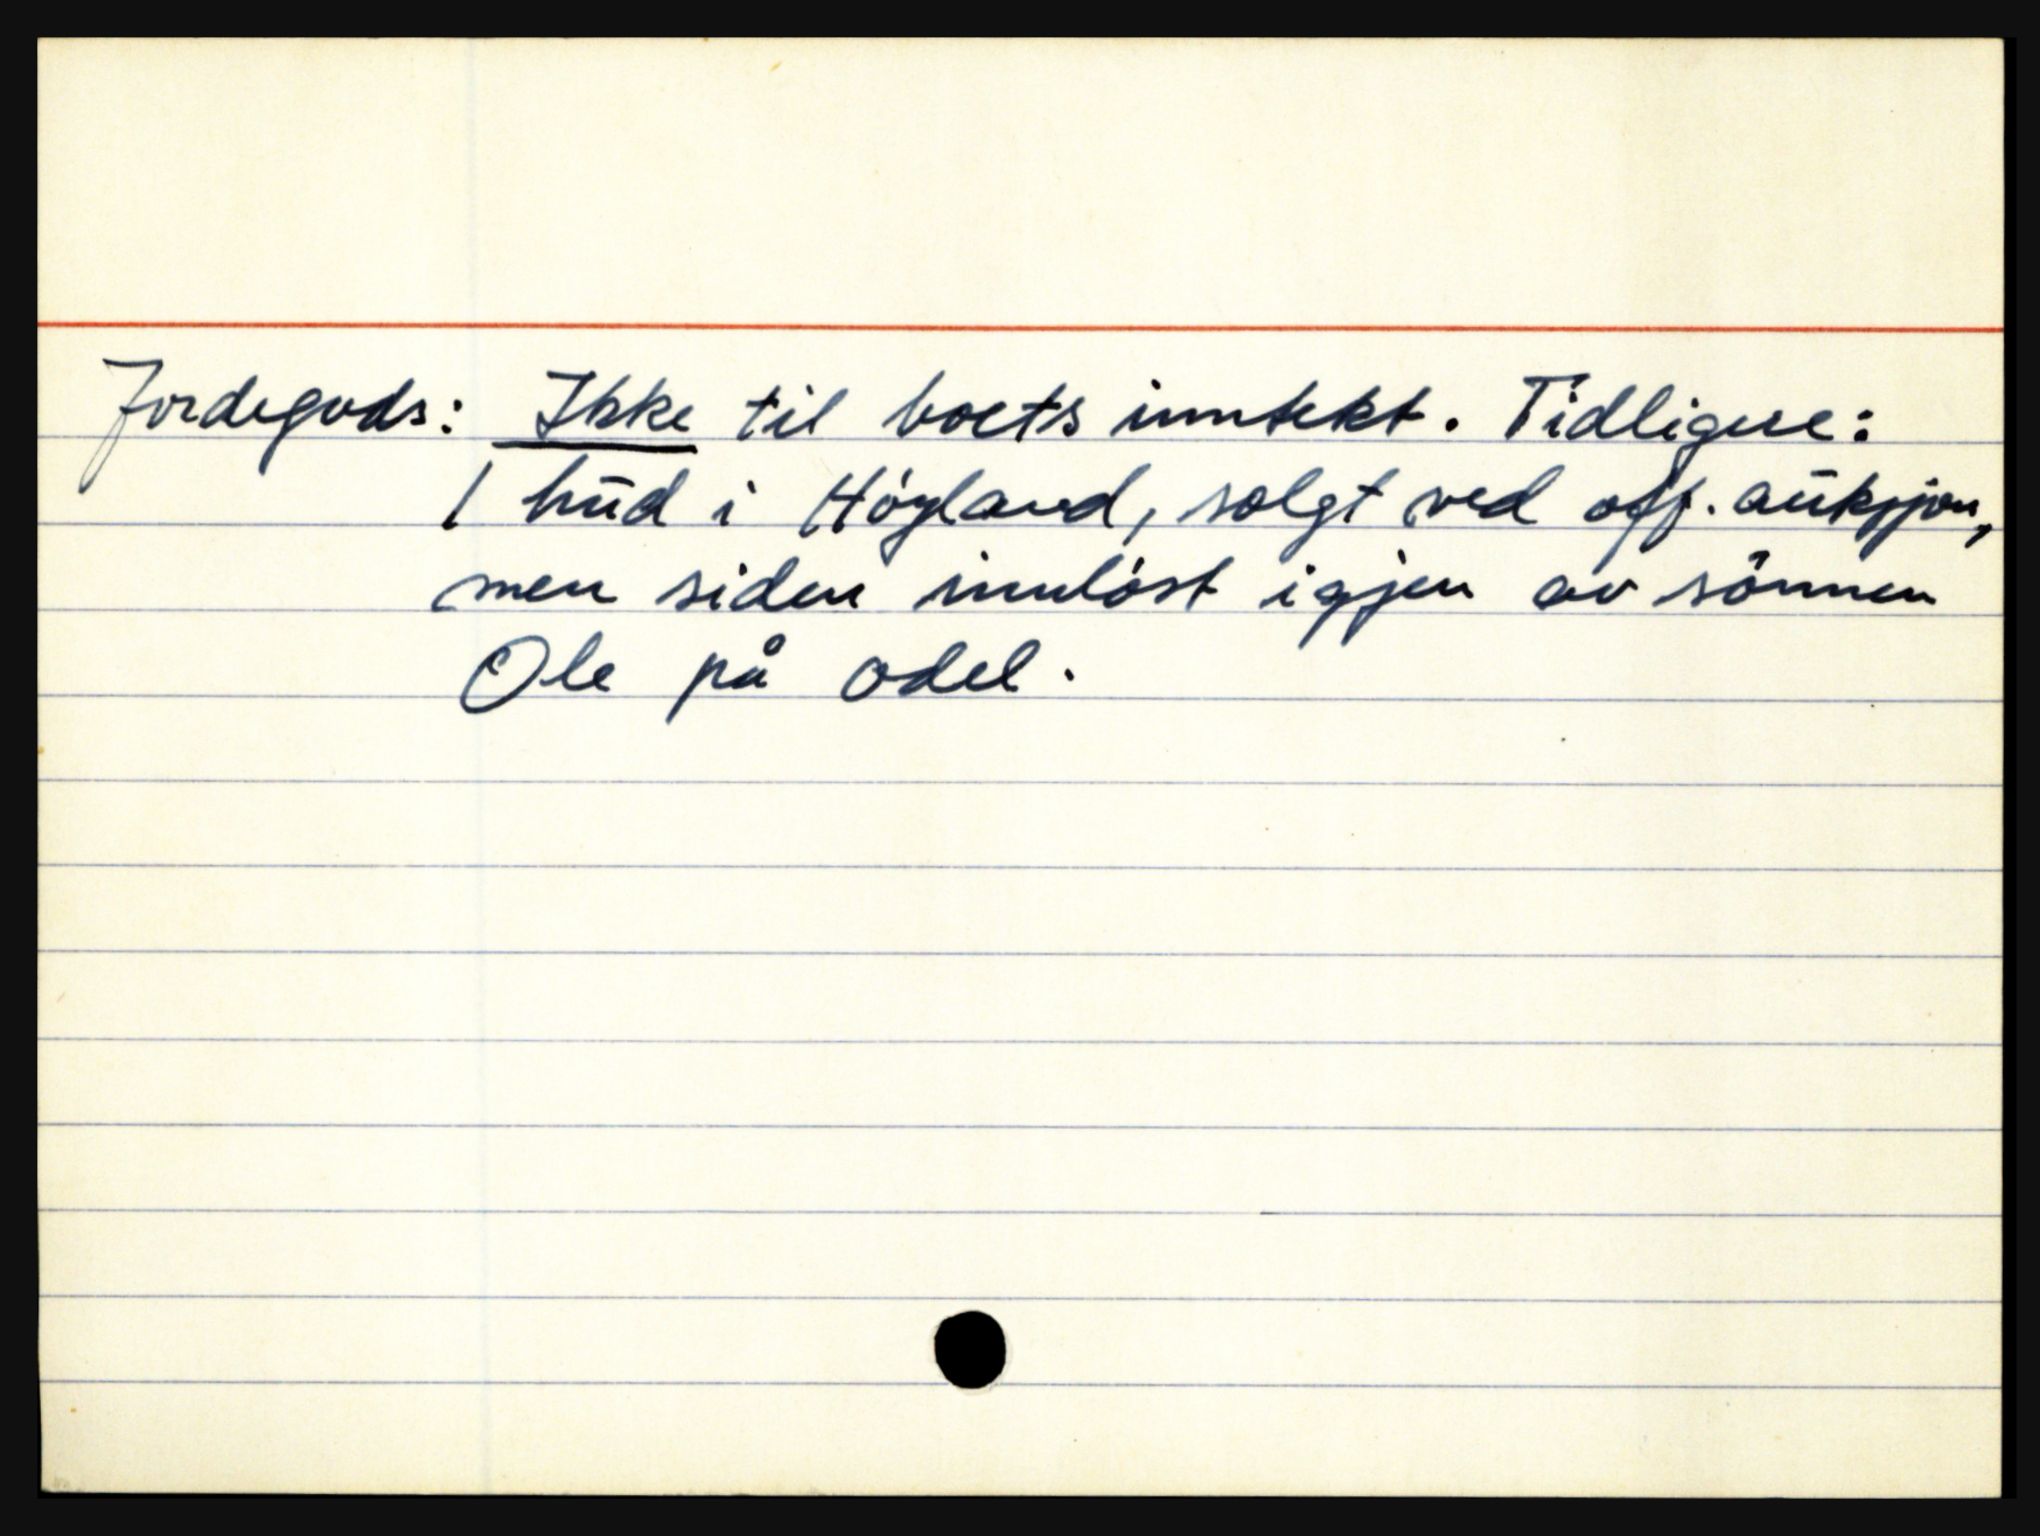 Jordegods: Ikke til boets inntekt. Tidligere:
1 hud i Höyland, solgt ved off. auksjon,
men siden innlöst igjen av sönnen
Ole på odel.